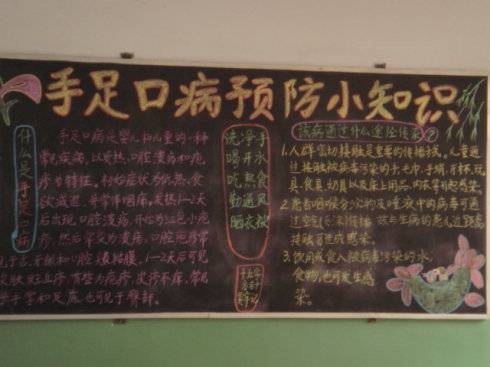 手足口病预防小知识
什么是手足口病
手足口病是婴儿和儿童的一种
常见疾病,以发热、口腔溃疡和疱
疹为特征。初始症状为低热、食
欲减退、并常伴咽痛。发热1-2天
后出现口腔溃疡,开始为红色小疱
疹,然后常变为溃疡。口腔疱疹常
见于舌、牙龈和口腔颊黏膜。1-2天后可见
皮肤斑丘疹,有些为疱疹,皮疹不痒,常见
于手掌和足底,也可见于臀部。
洗净手
喝开水
吃熟食
勤通风
晒衣被
该病通过什么途径传染?
1.人群密切接触是重要的传播方式。儿童通
过接触被病毒污染的手、毛巾、手绢、牙杯、玩
具、食具、奶具以及床上用品、内衣等引起感染。
2.患者咽喉分泌物及唾液中的病毒可通
过空气(飞沫)传播,故与生病的患儿近距离
接触可造成感染。
3.饮用或食入被病毒污染的水、
食物,也可发生感
染。